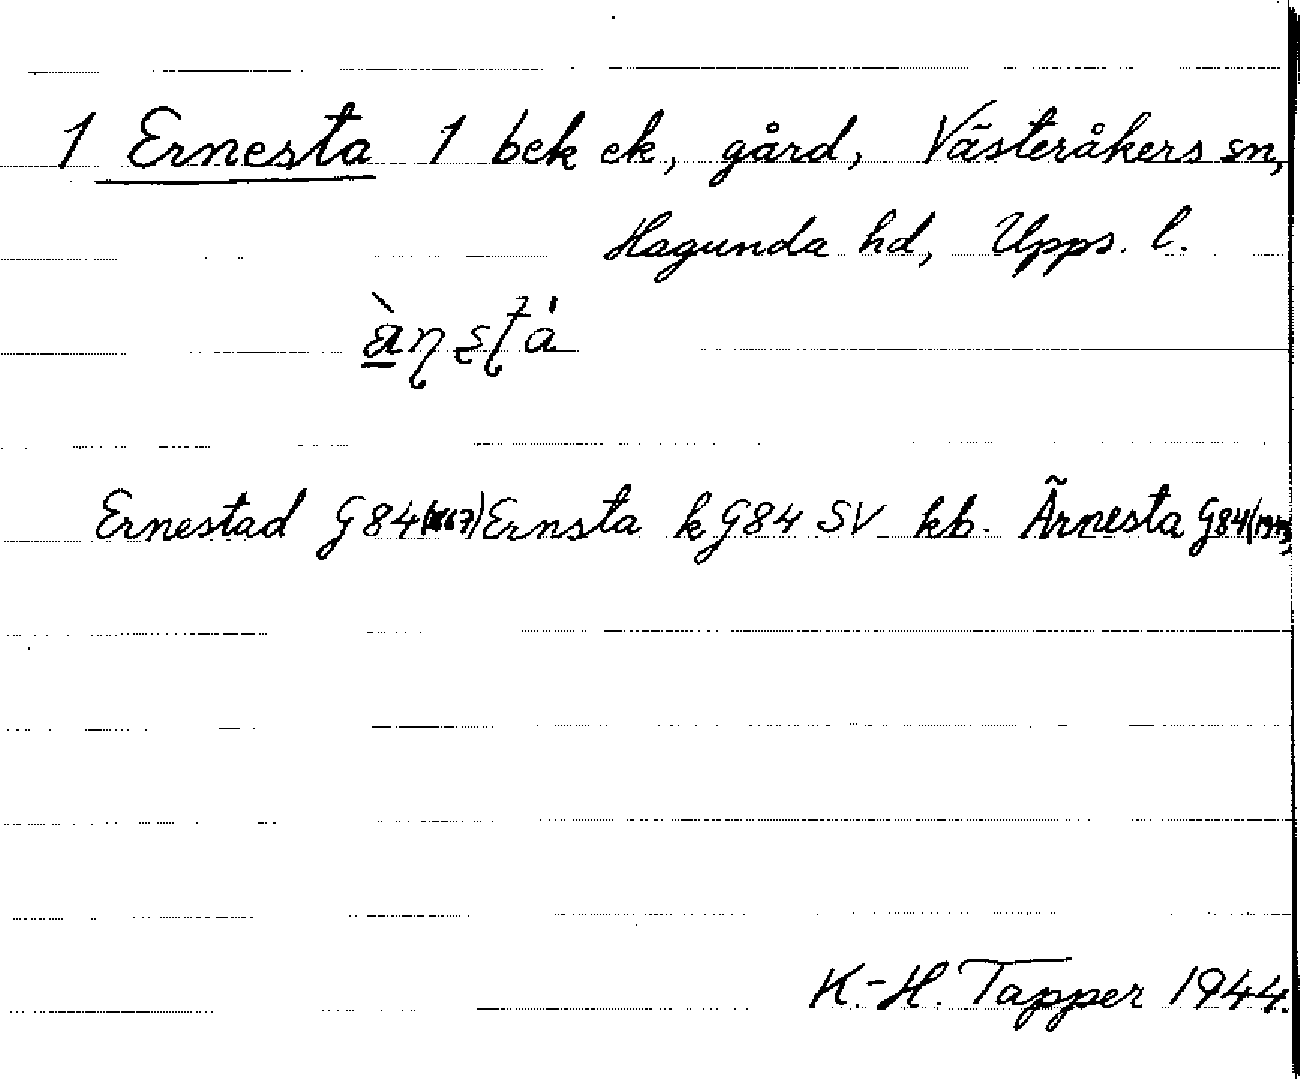 1 Ernesta 1 bek ek, gård, Västeråkers sn,
Hagunda hd, Upps. l.
Ernestad G84 Ernsta k G84 SV kb. Ärnesta G84
K.-H. Tapper 1944.